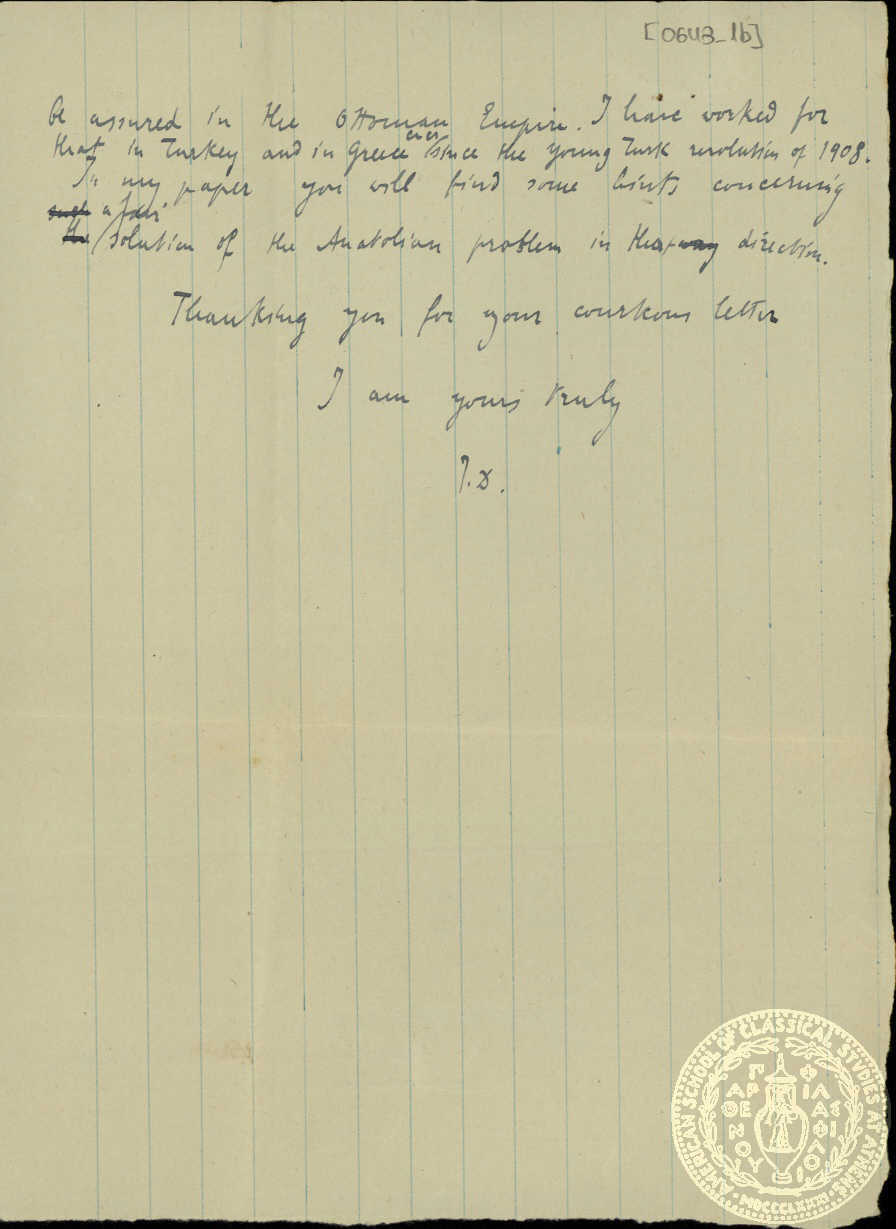 [0643_1b]
be assured in the Ottoman Empire. I have worked for
that in Turkey and in Greece ever since the Young Turk revolution of 1908.
In my paper you will find some hints concerning
such a fair
the solution of the Anatolian problem in that way direction.
Thanking you for your courteous letter
I am yours truly
I.D.
AMERICAN SCHOOL OF CLASSICAL STUDIES AT ATHENS
ΠΑΡΘΕΝΟΥ ΦΙΛΑΣ ΦΙΛΟΙ
MDCCCLXXXI